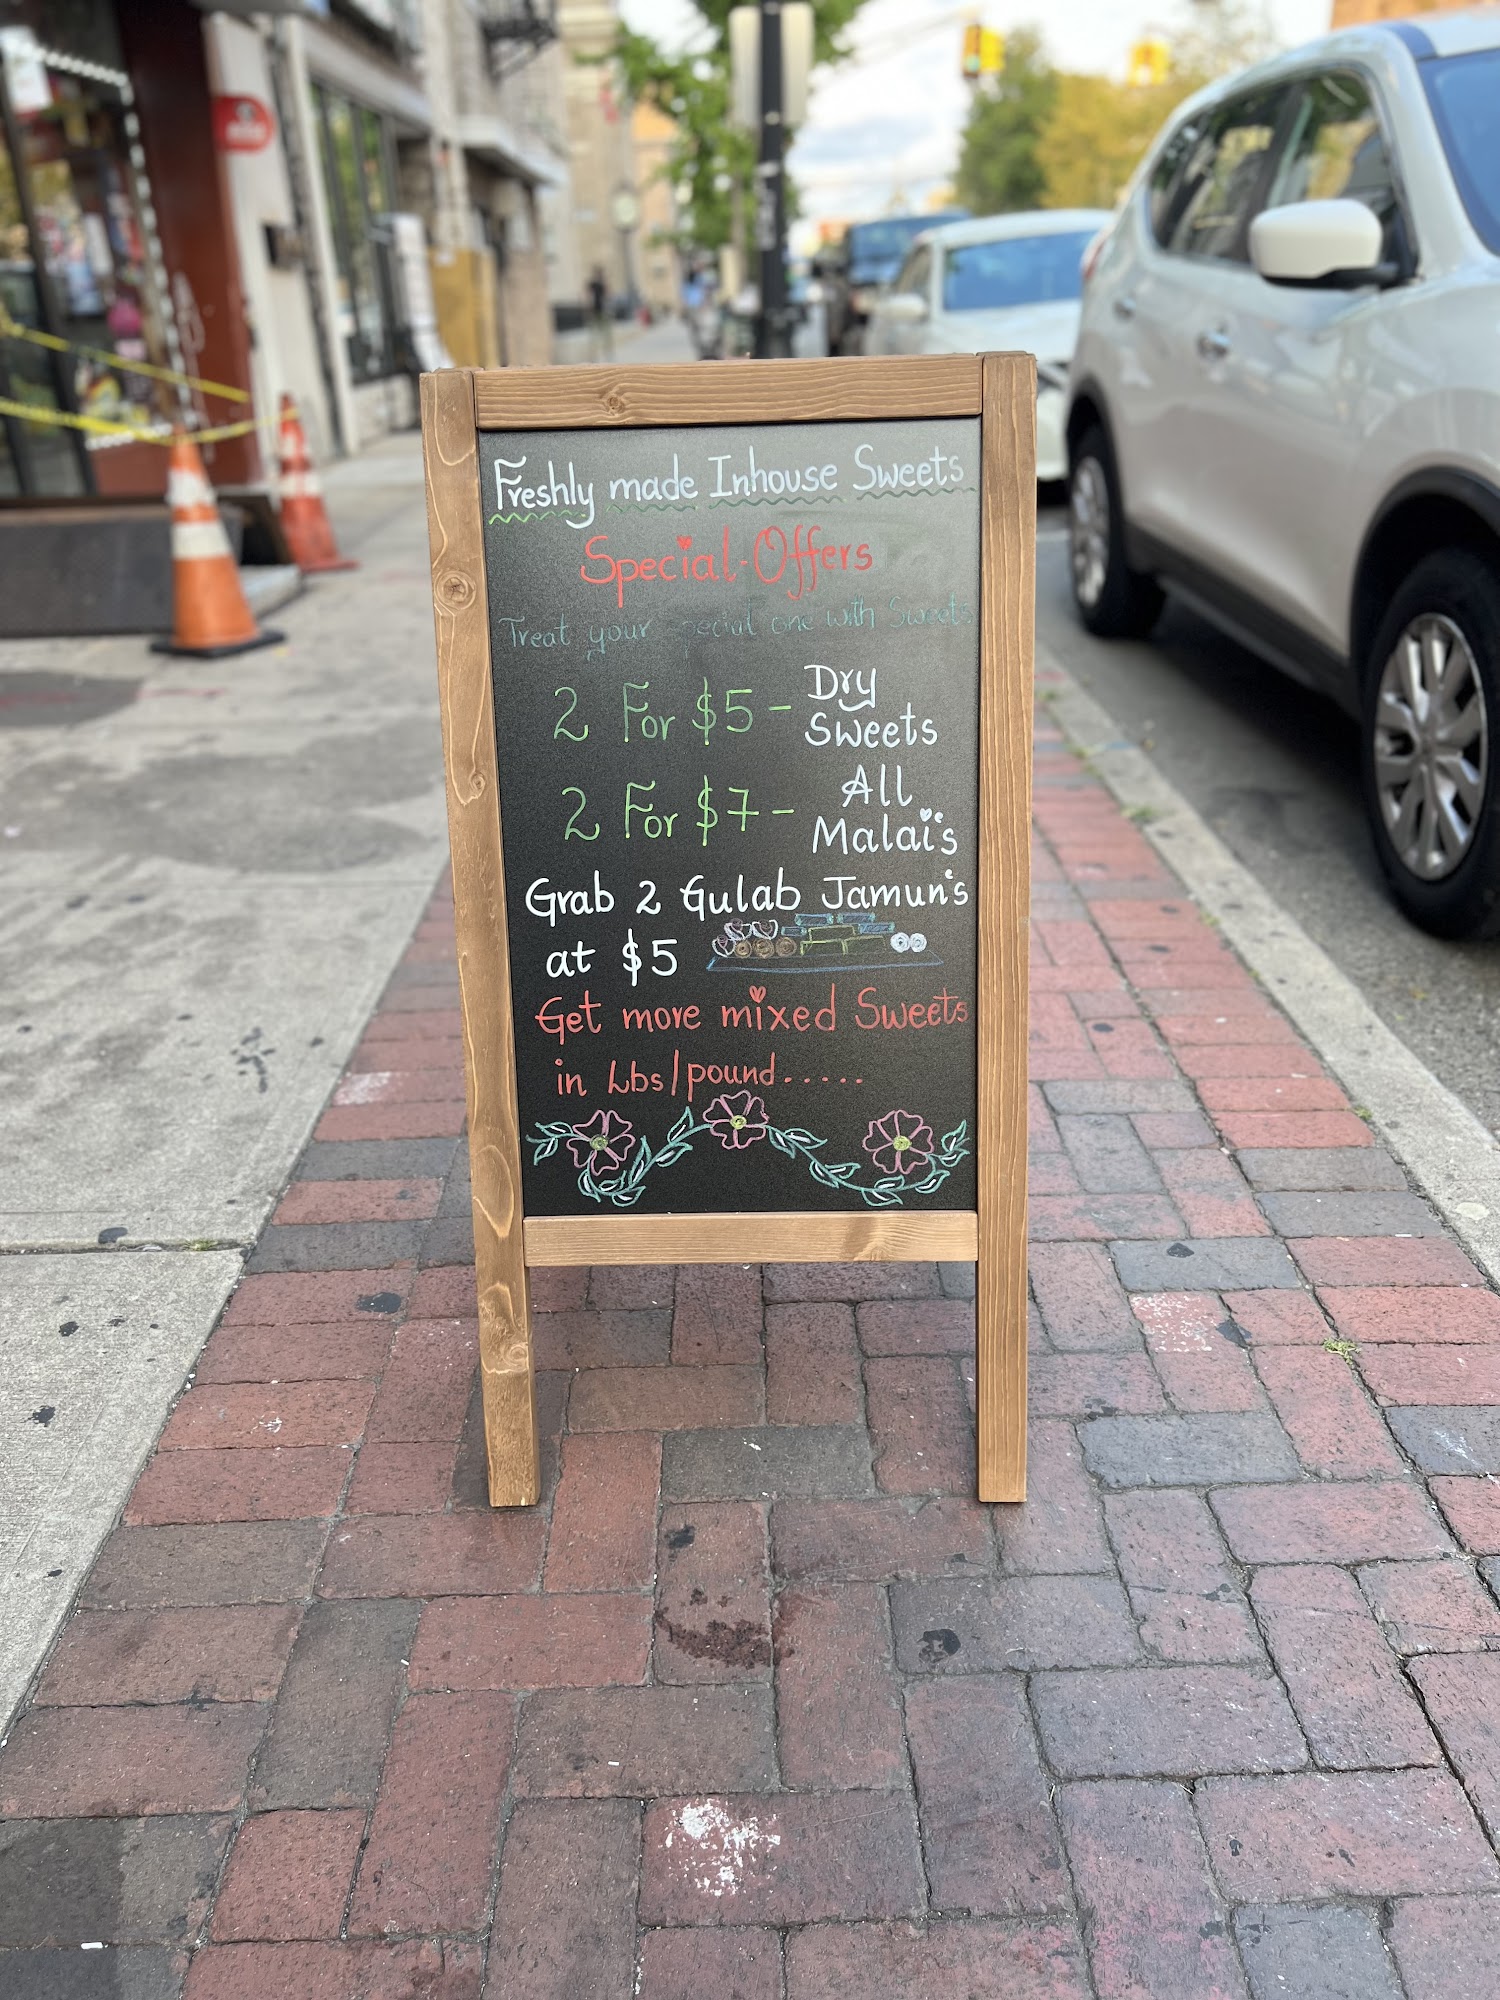 Freshly made Inhouse Sweets
Special-Offers
Treat your special one with Sweets
2 For $5 - Dry Sweets
2 For $7 - All Malai's
Grab 2 Gulab Jamun's
at $5
Get more mixed Sweets
in Lbs/pound.....